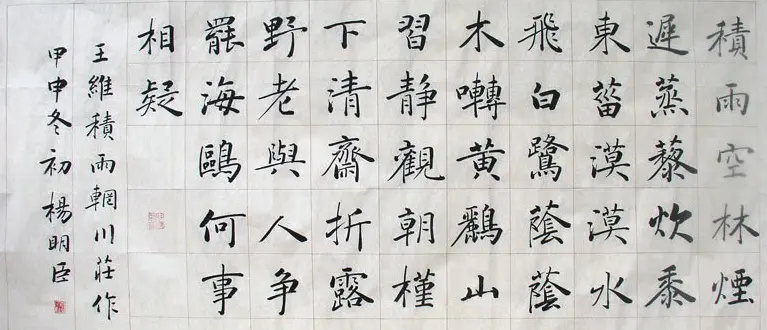 積雨空林煙
遲蒸藜炊黍
東菑漠漠水
飛白鷺蔭蔭
木囀黃鸝山
習静觀朝槿
下清齋折露
野老與人争
罷海鷗何事
相疑
王維積雨輞川莊作
甲申冬初楊明臣